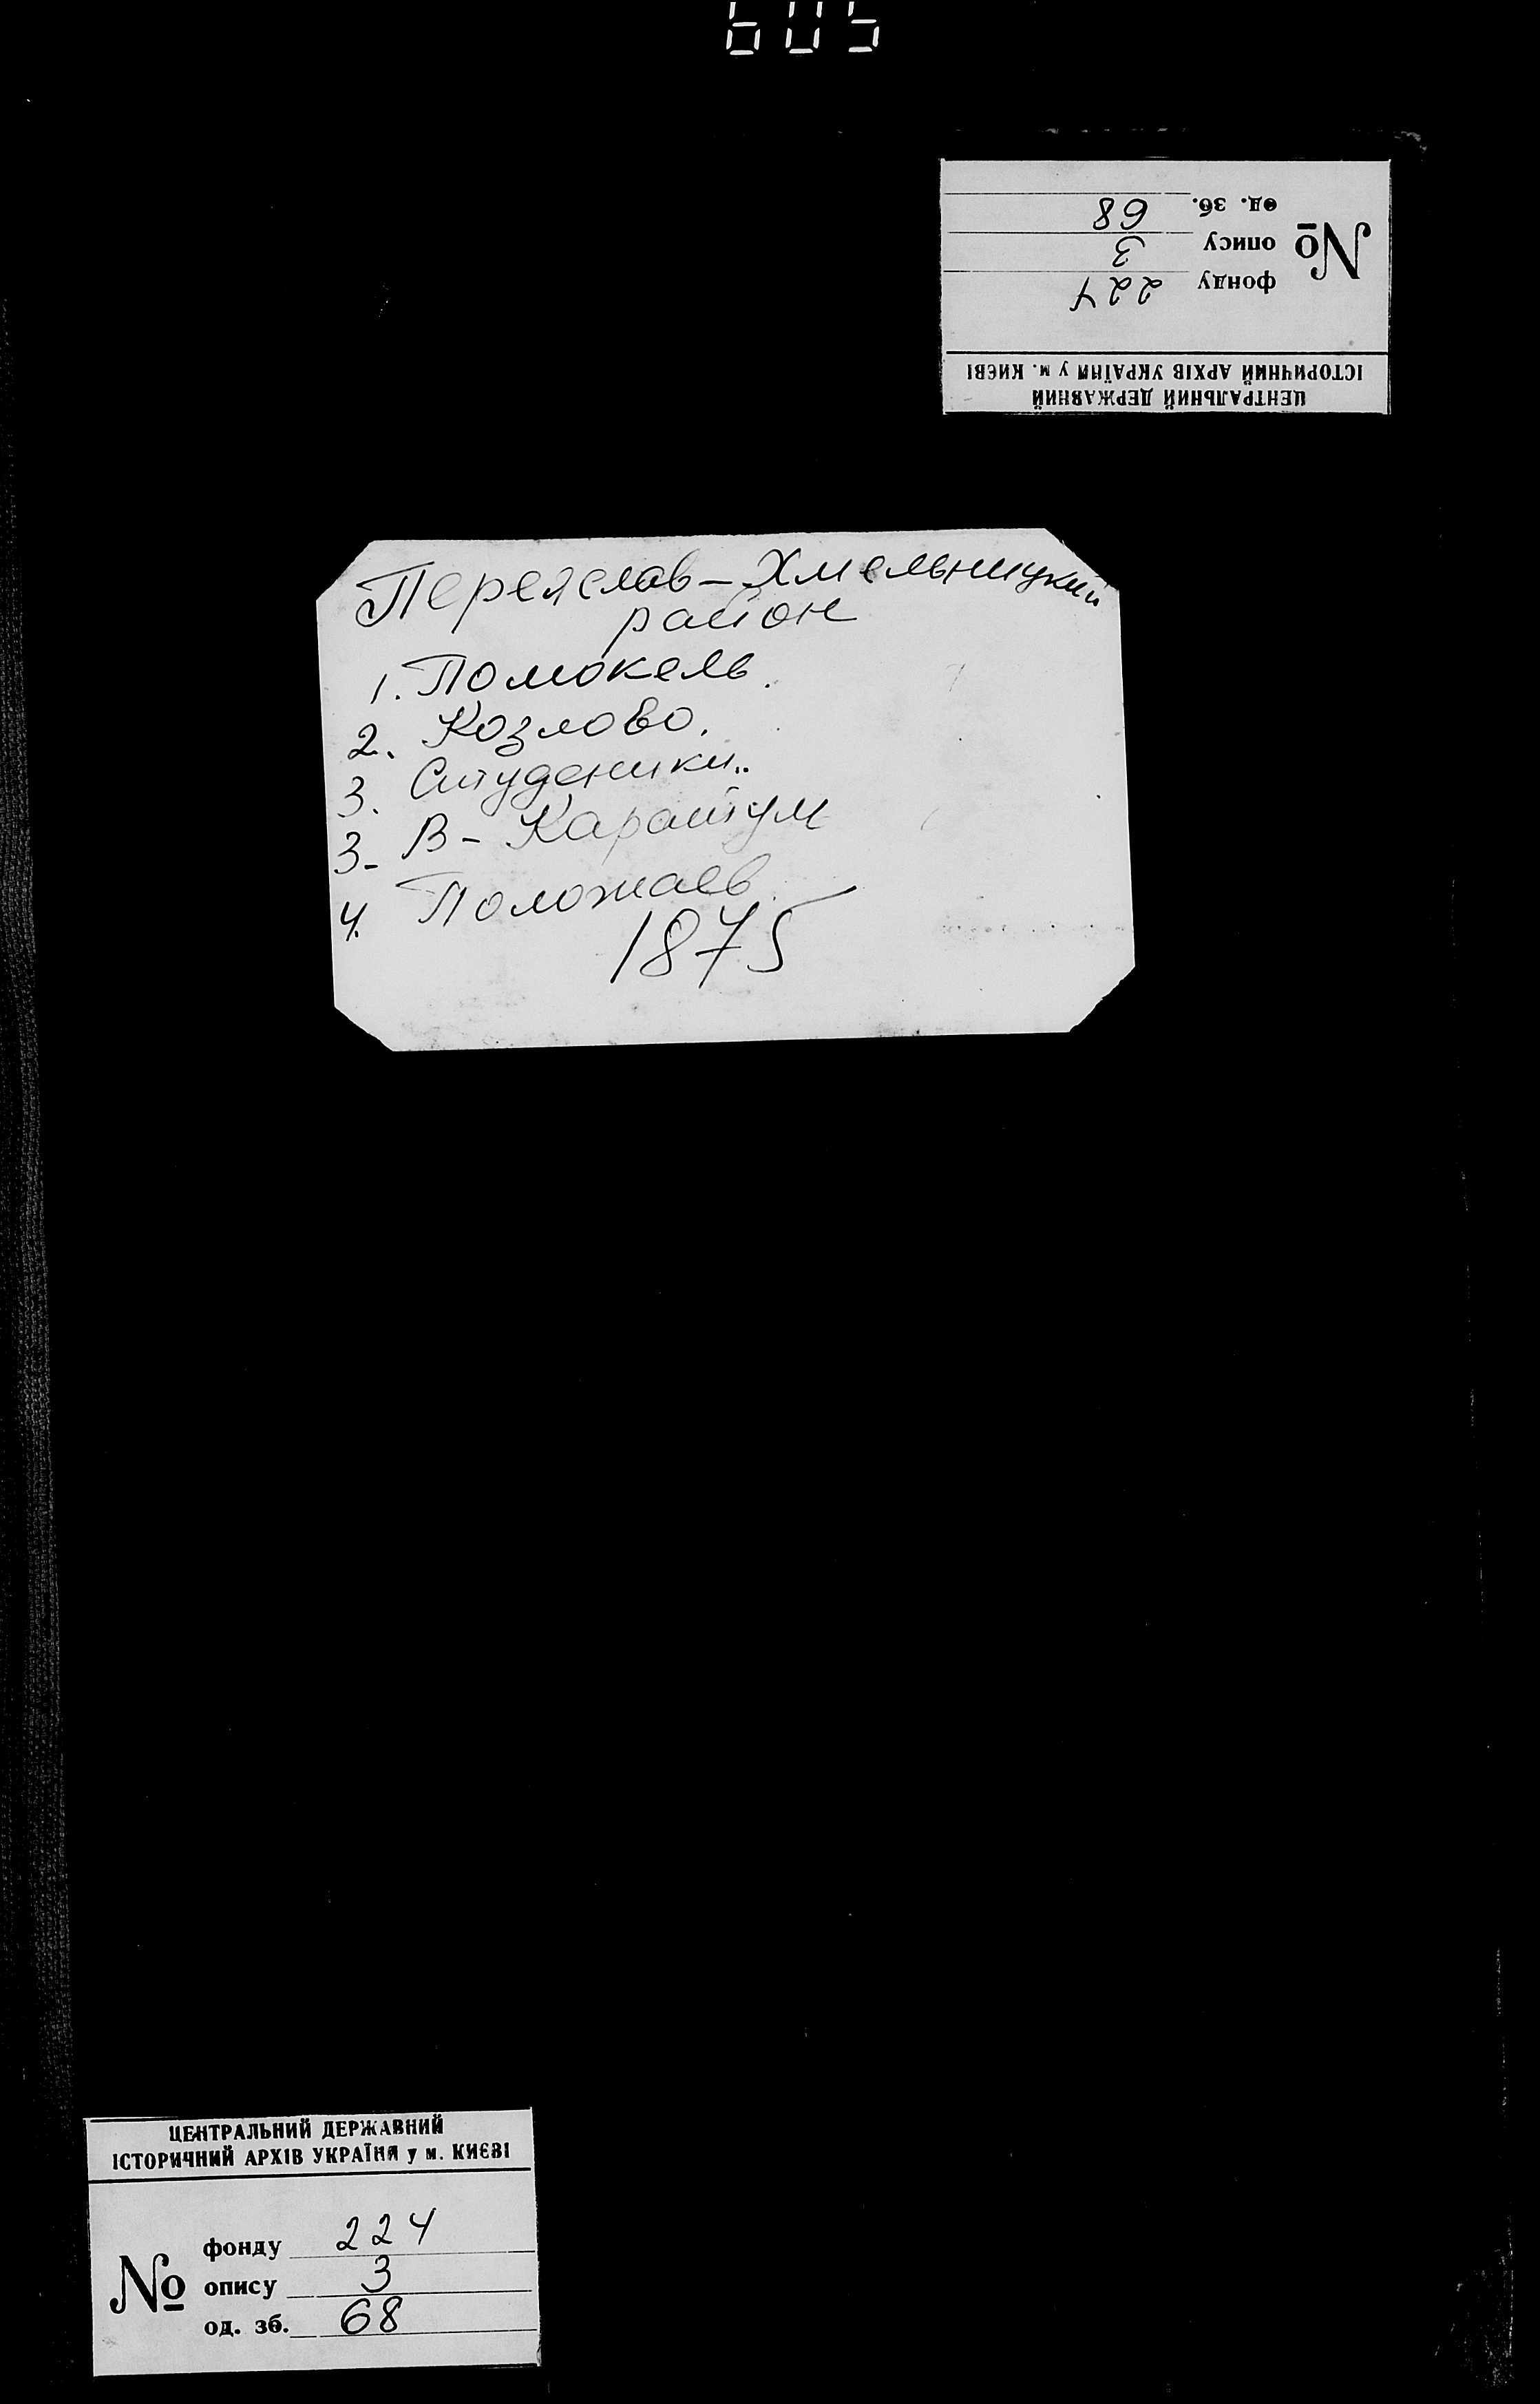 605
ЦЕНТРАЛЬНИЙ ДЕРЖАВНИЙ
ІСТОРИЧНИЙ АРХІВ УКРАЇНИ у м. КИЄВІ
№
фонду 224
опису 3
од. зб. 68
Переяслав-Хмельницкий
район
1. Помокель.
2. Козлово.
3. Студеники..
3- В- Каратул
4. Положаев.
1875
ЦЕНТРАЛЬНИЙ ДЕРЖАВНИЙ
ІСТОРИЧНИЙ АРХІВ УКРАЇНИ у м. КИЄВІ
№
фонду 224
опису 3
од. зб. 68